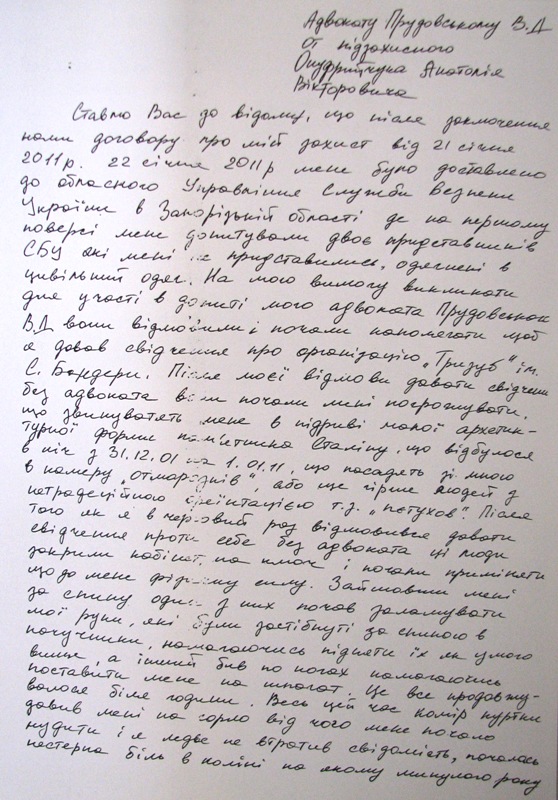 Адвокату Прудовському В.Д
от підзахисного
Онуфрийчука Анатолія
Вікторовича
Ставлю Вас до відома, що після заключення
нами договору про мій захист від 21 січня
2011р. 22 січня 2011р мене було доставлено
до обласного Управління Служби Безпеки
України в Запорізькій області де на першому
поверсі мене допитували двоє представників
СБУ які мені не представились, одягнені в
цивільний одяг. На мою вимогу викликати
для участі в допиті мого адвоката Прудовського
В.Д вони відмовили і почали намагати щоб
я давав свідчення про організацію "Тризуб" ім.
С. Бандери. Після моєї відмови давати свідчення
без адвоката вони почали мені погрожувати,
що звинуватять мене в підриві малої архетик-
турної форми пам'етника Сталіну, що відбулося
в ніч з 31.12.01 на 1.01.11, що посадять зі мною
в камеру "отмарознів", або ще гірше людей з
нетрадеційною орієнтацією т.з. "петухов". Після
того як я в черговий раз відмовився давати
свідчення проти себе без адвоката ці люди
закрили кабінет на ключ і почали приміняти
щодо мене фізичну силу. Займовши мені
за спину один з них почав заламувати
мої руки, які були застібнуті за спиною в
наручники, намагаючись підняти їх як умога
вище, а інший бив по ногах намагаючись
поставити мене на шпагат. Це все продовжу-
валося біля години. Весь цей час комір куртки
давив мені на горло від чого мене почало
нудити і я ледве не втратив свідомість, почалась
нестерпна біль в коліні на якому минулого року